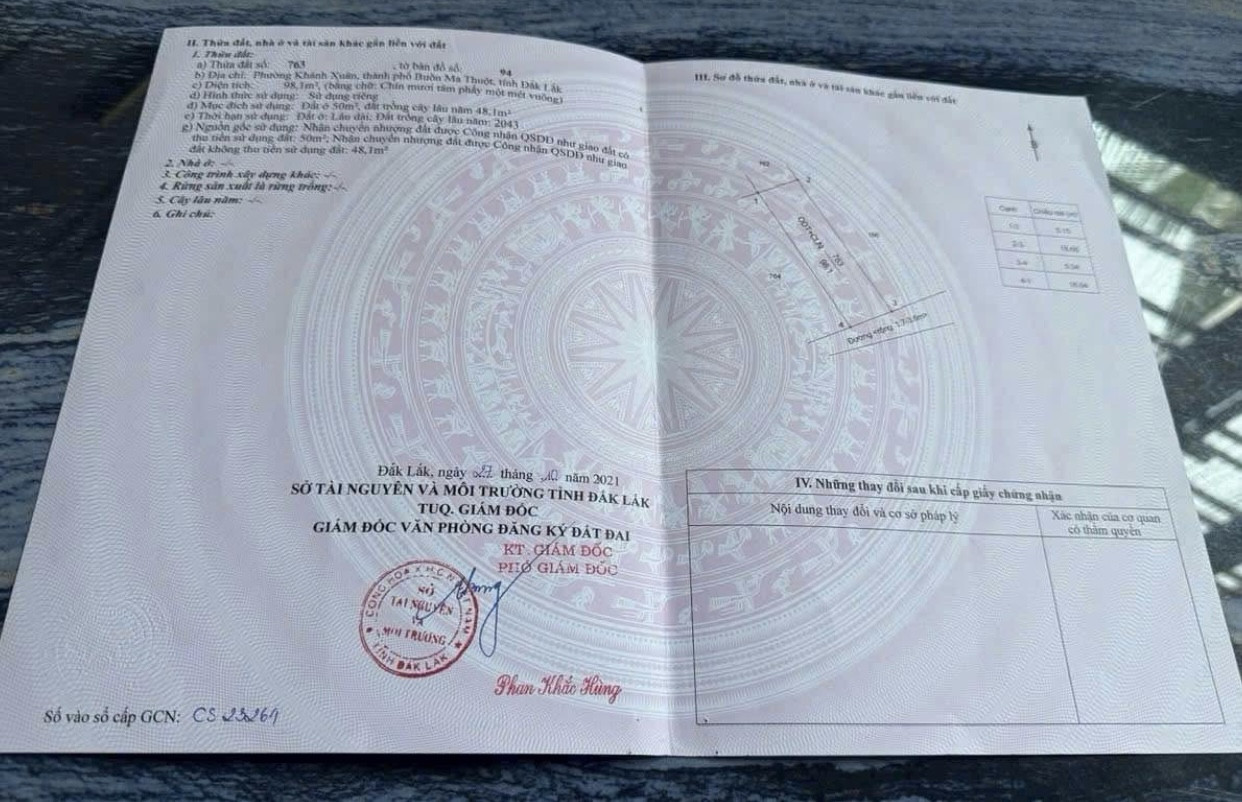 II. Thửa đất, nhà ở và tài sản khác gắn liền với đất
1. Thửa đất:
a) Thửa đất số: 763 , tờ bản đồ số: 94
b) Địa chỉ: Phường Khánh Xuân, thành phố Buôn Ma Thuột, tỉnh Đắk Lắk
c) Diện tích: 98,1m², (bằng chữ: Chín mươi tám phẩy một mét vuông)
d) Hình thức sử dụng: Sử dụng riêng
đ) Mục đích sử dụng: Đất ở 50m², đất trồng cây lâu năm 48,1m²
e) Thời hạn sử dụng: Đất ở: Lâu dài; Đất trồng cây lâu năm: 2043
g) Nguồn gốc sử dụng: Nhận chuyển nhượng đất được Công nhận QSDĐ như giao đất có
thu tiền sử dụng đất: 50m²; Nhận chuyển nhượng đất được Công nhận QSDĐ như giao
đất không thu tiền sử dụng đất: 48,1m²
2. Nhà ở: -/-
3. Công trình xây dựng khác: -/-
4. Rừng sản xuất là rừng trồng: -/-
5. Cây lâu năm: -/-
6. Ghi chú:
Đắk Lắk, ngày 27 tháng 10 năm 2021
SỞ TÀI NGUYÊN VÀ MÔI TRƯỜNG TỈNH ĐẮK LẮK
TUQ. GIÁM ĐỐC
GIÁM ĐỐC VĂN PHÒNG ĐĂNG KÝ ĐẤT ĐAI
KT. GIÁM ĐỐC
PHÓ GIÁM ĐỐC
CỘNG HÒA X.H.C.N VIỆT NAM
SỞ
TÀI NGUYÊN
VÀ
MÔI TRƯỜNG
TỈNH ĐẮK LẮK
Phan Khắc Hùng
Số vào sổ cấp GCN: CS 23264
III. Sơ đồ thửa đất, nhà ở và tài sản khác gắn liền với đất
2
1
ODT+CLN 763
98.1
764
3
4
Đường rộng
Cạnh Chiều dài (m)
1-2
2-3
3-4
4-1
IV. Những thay đổi sau khi cấp giấy chứng nhận
Nội dung thay đổi và cơ sở pháp lý
Xác nhận của cơ quan
có thẩm quyền